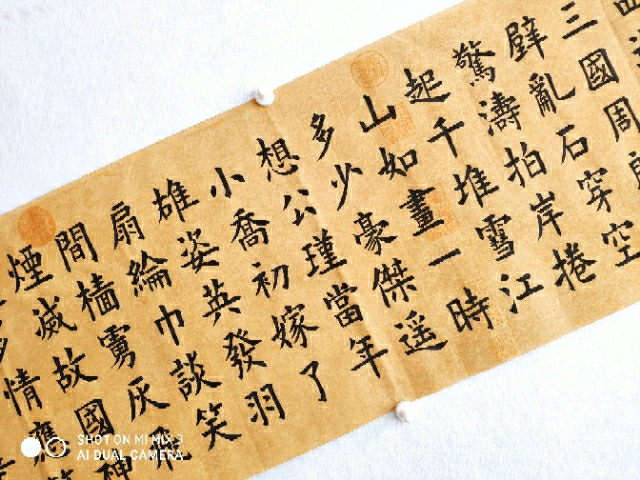 三國周郎
壁亂石穿空
驚濤拍岸捲
起千堆雪江
山如畫一時
多少豪傑遥
想公瑾當年
小喬初嫁了
雄姿英發羽
扇綸巾談笑
間檣虜灰飛
煙滅故國神
多情應
SHOT ON MI MIX 3
AI DUAL CAMERA